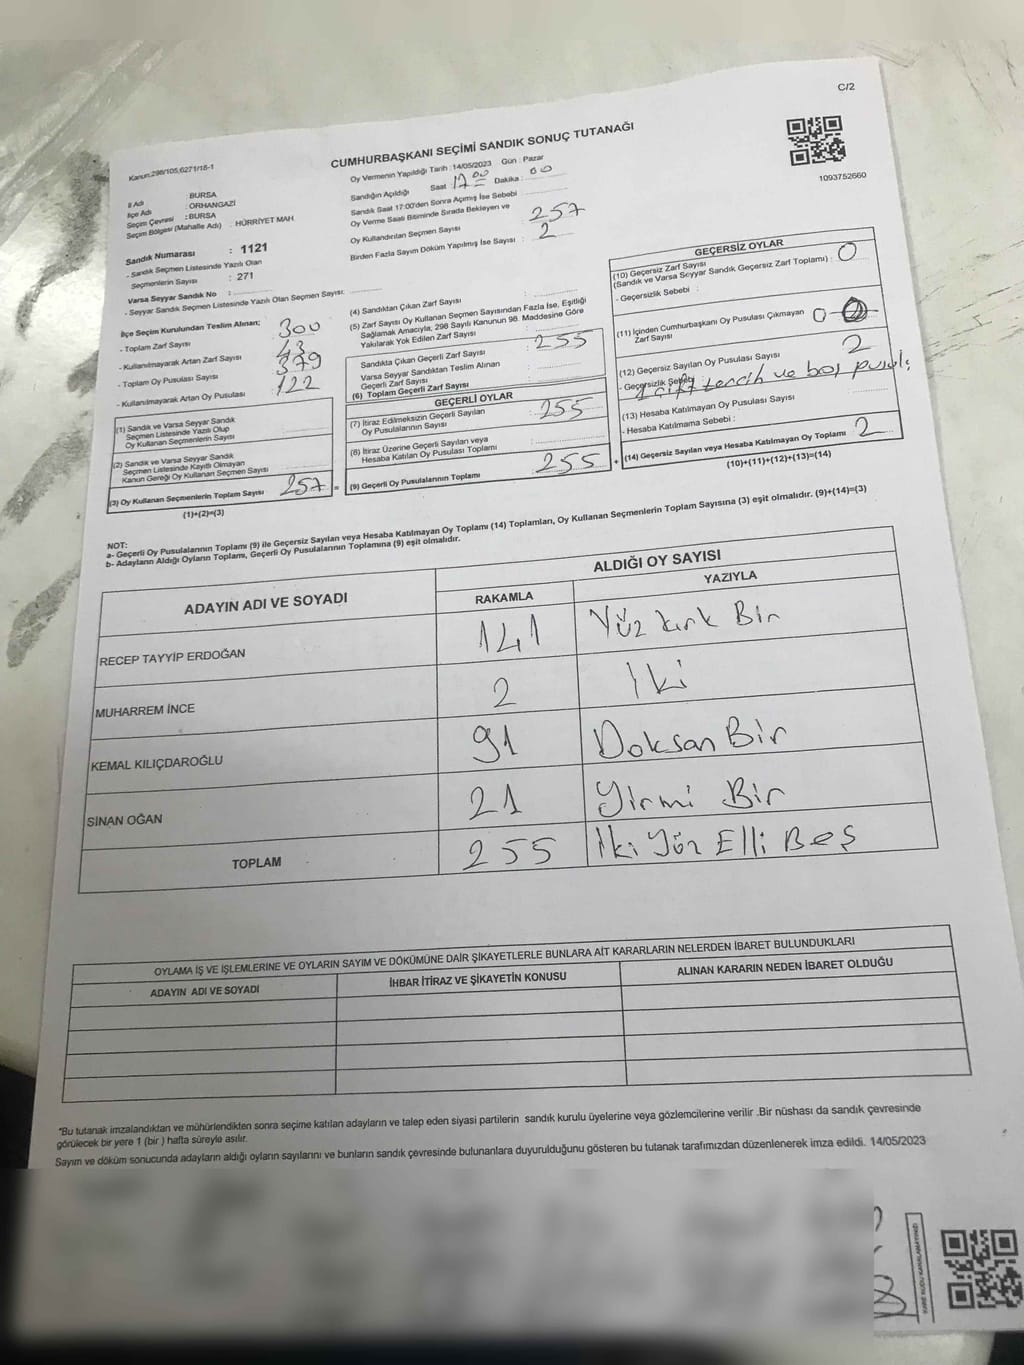 C/2
Kanun:298/105,6271/16-1
CUMHURBAŞKANI SEÇİMİ SANDIK SONUÇ TUTANAĞI
1093752660
İl Adı : BURSA
İlçe Adı : ORHANGAZİ
Seçim Çevresi : BURSA
Seçim Bölgesi (Mahalle Adı) : HÜRRİYET MAH
Sandık Numarası : 1121
- Sandık Seçmen Listesinde Yazılı Olan
Seçmenlerin Sayısı : 271
Varsa Seyyar Sandık No :
- Seyyar Sandık Seçmen Listesinde Yazılı Olan Seçmen Sayısı:
Oy Vermenin Yapıldığı Tarih : 14/05/2023 Gün : Pazar
Sandığın Açıldığı Saat : 17 00 Dakika : 00
Sandık Saat 17:00'den Sonra Açımış İse Sebebi :
Oy Verme Saati Bitiminde Sırada Bekleyen ve
Oy Kullandırılan Seçmen Sayısı : 257
Birden Fazla Sayım Döküm Yapılmış İse Sayısı : 2
İlçe Seçim Kurulundan Teslim Alınan;
- Toplam Zarf Sayısı 300
- Kullanılmayarak Artan Zarf Sayısı 43
- Toplam Oy Pusulası Sayısı 379
- Kullanılmayarak Artan Oy Pusulası 122
(1) Sandık ve Varsa Seyyar Sandık
Seçmen Listesinde Yazılı Olup
Oy Kullanan Seçmenlerin Sayısı
(2) Sandık ve Varsa Seyyar Sandık
Seçmen Listesinde Kayıtlı Olmayan
Kanun Gereği Oy Kullanan Seçmen Sayısı
(3) Oy Kullanan Seçmenlerin Toplam Sayısı 257 =
(1)+(2)=(3)
(4) Sandıktan Çıkan Zarf Sayısı :
(5) Zarf Sayısı Oy Kullanan Seçmen Sayısından Fazla İse, Eşitliği
Sağlamak Amacıyla; 298 Sayılı Kanunun 98. Maddesine Göre
Yakılarak Yok Edilen Zarf Sayısı :
Sandıkta Çıkan Geçerli Zarf Sayısı : 255
Varsa Seyyar Sandıktan Teslim Alınan
Geçerli Zarf Sayısı :
(6) Toplam Geçerli Zarf Sayısı :
GEÇERLİ OYLAR
(7) İtiraz Edilmeksizin Geçerli Sayılan
Oy Pusulalarının Sayısı : 255
(8) İtiraz Üzerine Geçerli Sayılan veya
Hesaba Katılan Oy Pusulası Toplamı :
(9) Geçerli Oy Pusulalarının Toplamı 255 +
GEÇERSİZ OYLAR
(10) Geçersiz Zarf Sayısı
(Sandık ve Varsa Seyyar Sandık Geçersiz Zarf Toplamı) : 0
- Geçersizlik Sebebi :
(11) İçinden Cumhurbaşkanı Oy Pusulası Çıkmayan
Zarf Sayısı 0
(12) Geçersiz Sayılan Oy Pusulası Sayısı 2
- Geçersizlik Sebebi
1 çift tercih ve boş pusul:
(13) Hesaba Katılmayan Oy Pusulası Sayısı
- Hesaba Katılmama Sebebi :
(14) Geçersiz Sayılan veya Hesaba Katılmayan Oy Toplamı 2
(10)+(11)+(12)+(13)=(14)
NOT:
a- Geçerli Oy Pusulalarının Toplamı (9) ile Geçersiz Sayılan veya Hesaba Katılmayan Oy Toplamı (14) Toplamları, Oy Kullanan Seçmenlerin Toplam Sayısına (3) eşit olmalıdır. (9)+(14)=(3)
b- Adayların Aldığı Oyların Toplamı, Geçerli Oy Pusulalarının Toplamına (9) eşit olmalıdır.
ADAYIN ADI VE SOYADI
ALDIĞI OY SAYISI
RAKAMLA YAZIYLA
RECEP TAYYİP ERDOĞAN 141 Yüz kırk Bir
MUHARREM İNCE 2 İki
KEMAL KILIÇDAROĞLU 91 Doksan Bir
SİNAN OĞAN 21 Yirmi Bir
TOPLAM 255 İki Yüz Elli Beş
OYLAMA İŞ VE İŞLEMLERİNE VE OYLARIN SAYIM VE DÖKÜMÜNE DAİR ŞİKAYETLERLE BUNLARA AİT KARARLARIN NELERDEN İBARET BULUNDUKLARI
ADAYIN ADI VE SOYADI İHBAR İTİRAZ VE ŞİKAYETİN KONUSU ALINAN KARARIN NEDEN İBARET OLDUĞU
*Bu tutanak imzalandıktan ve mühürlendikten sonra seçime katılan adayların ve talep eden siyasi partilerin sandık kurulu üyelerine veya gözlemcilerine verilir .Bir nüshası da sandık çevresinde
görülecek bir yere 1 (bir ) hafta süreyle asılır.
Sayım ve döküm sonucunda adayların aldığı oyların sayılarını ve bunların sandık çevresinde bulunanlara duyurulduğunu gösteren bu tutanak tarafımızdan düzenlenerek imza edildi. 14/05/2023